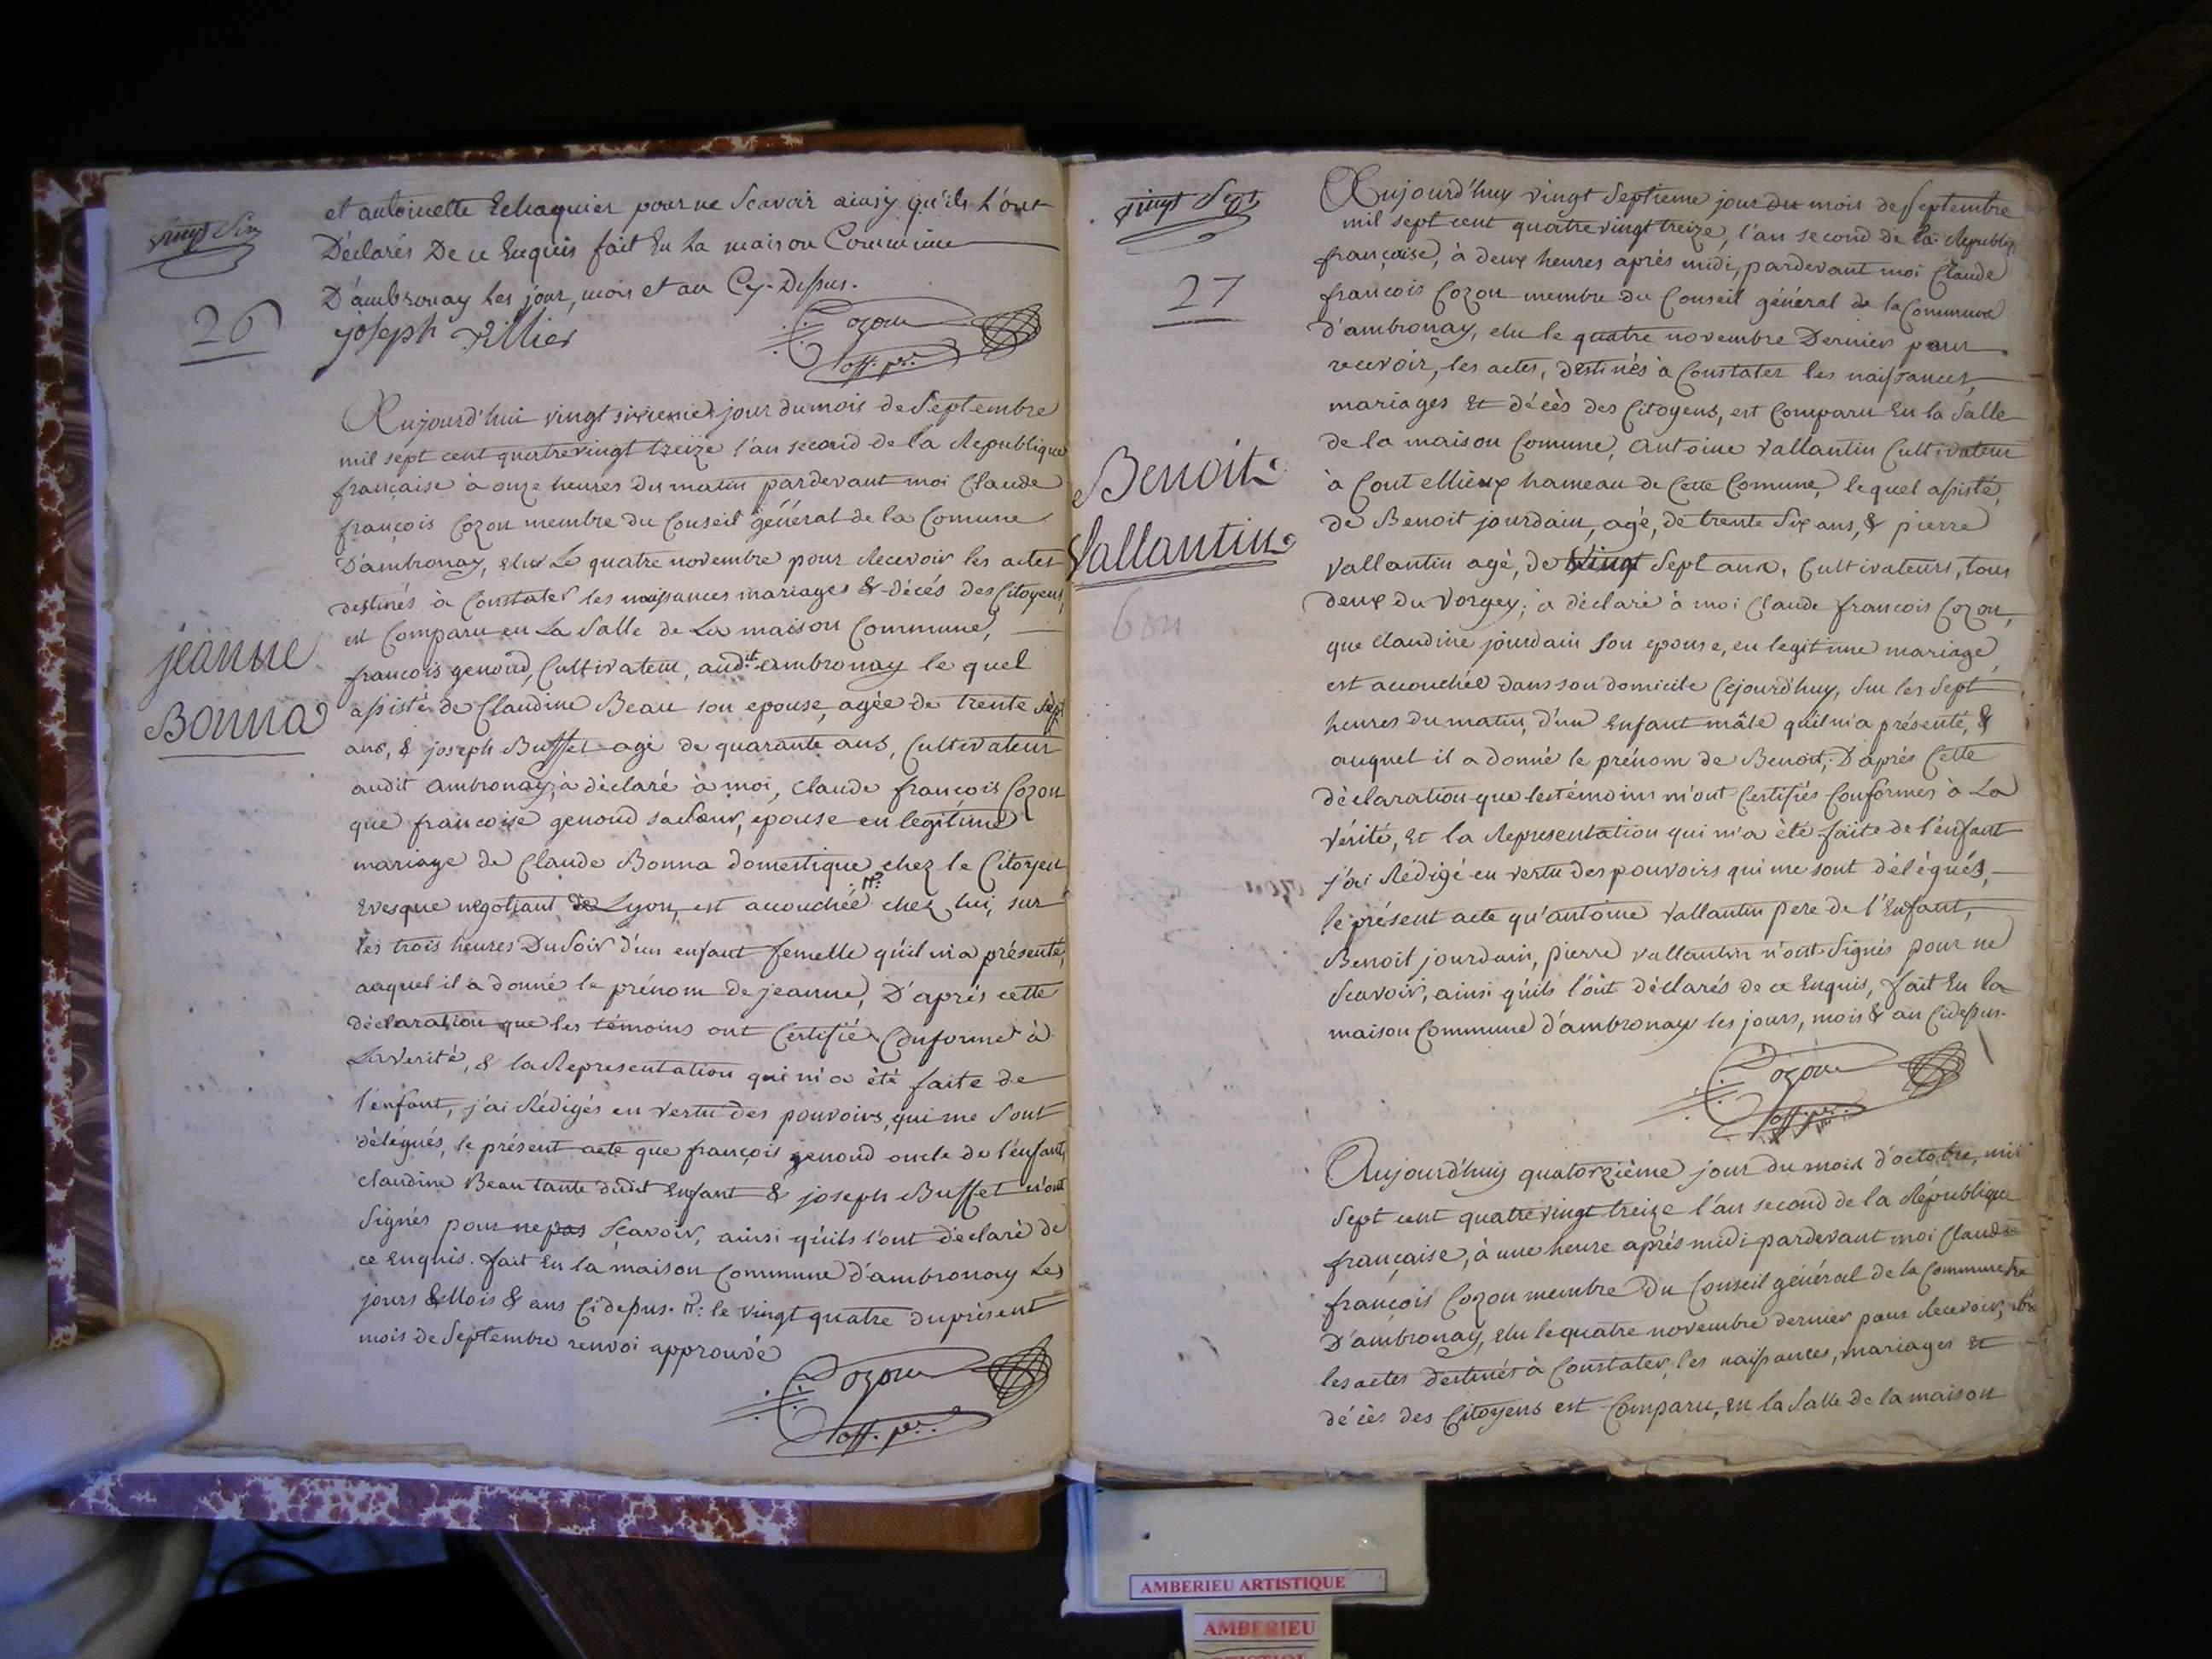 vingt Six
26
et antoinette Echaquier pour ne Scavoir ainsy qu'ils L'ont
Déclarés De ce Enquis fait En La maison Commune
D'ambronay Les jour, mois et an Cy-Dessus.
joseph
Cozon
off. pc.
jeanne
Bonna
Aujourd'hui vingt sixieme jour du mois de Septembre
mil sept cent quatrevingt treize l'an second de la Republique
française à onze heures du matin pardevant moi Claude
françois Cozon membre du Conseil général de la Comune
D'ambronay, elu Le quatre novembre pour Recevoir les actes
destinés à Constater les naissances mariages & décés des Citoyens,
est Comparu en La Salle de La maison Commune,
françois genoud, Cultivateur, audit ambronay le quel
assisté de Claudine Beau son epouse, agée de trente Sept
ans, & joseph Buffet agé de quarante ans, Cultivateur
audit ambronay, à déclaré à moi, Claude françois Cozon
que francoise genoud sa Sœur, epouse en legitime
mariage de Claude Bonna domestique chez le Citoyen
Evesque negotiant de Lyon, est accouchée chez lui, sur
les trois heures Du Soir d'un enfant femelle qu'il m'a présenté,
auquel il a donné le prénom de jeanne, D'aprés cette
déclaration que les témoins ont Certifié Conforme à
La Verité, & la Representation qui m'a été faite de
l'enfant, j'ai Rédigés en vertu des pouvoirs, qui me Sont
délégués, le présent acte que françois genoud oncle de l'enfant,
claudine Beau tante dudit Enfant & joseph Buffet n'ont
Signés pour ne pas Scavoir, ainsi qu'ils l'ont déclaré de
ce Enquis. fait En la maison Commune d'ambronay Les
jours & Mois & ans Cidessus. le vingt quatre du présent
mois de Septembre renvoi approuvé
Cozon
off. pc.
vingt Sept
27
Benoit
Vallantin
bon
Aujourd'huy vingt Septieme jour du mois de Septembre
mil sept cent quatre vingt treize, l'an second de la Republiq
française, à deux heures aprés midi, pardevant moi Claude
françois Cozon membre du Conseil général de la Commune
d'ambronay, elu le quatre novembre Dernier pour
recevoir, les actes, destinés à Constater les naissances,
mariages Et décès des Citoyens, est Comparu En la Salle
de la maison Comune, Antoine Vallantin Cultivateur
à Coutellieux hameau de Cette Comune, lequel assisté,
de Benoit jourdain, agé, de trente Six ans, & pierre
Vallantin agé, de Vingt Sept ans, Cultivateurs, tous
deux du Vorgey; à déclaré à moi Claude francois Cozon,
que Claudine jourdain Son epouse, en legitime mariage,
est accouchée dans son domicile Cejourd'huy, Sur les Sept
heures du matin, d'un Enfant mâle qu'il m'a présenté, &
auquel il a donné le prénom de Benoit; D'aprés Cette
déclaration que les témoins m'ont Certifiés Conformes à La
Vérité, Et la Representation qui m'a été faite de l'énfant
j'ai Rédigé en vertu des pouvoirs qui me sont délégués,
le présent acte qu'antoine Vallantin pere de l'Enfant,
Benoit jourdain, pierre vallantin n'ont Signés pour ne
Scavoir, ainsi qu'ils l'ont déclarés de ce Enquis, fait En la
maison Commune d'ambronay les jours, mois & an Cidessus.
Cozon
off. pc.
Aujourd'huy quatorzième jour du mois d'octobre, mil
Sept cent quatre vingt treize l'an second de la République
française, à une heure aprés midi pardevant moi Claude
françois Cozon membre Du Conseil général de la Commune
D'ambronay, elu le quatre novembre dernier pour Recevoir,
les actes destinés à Constater, les naissances, mariages Et
décès des Citoyens est Comparu, En la Salle de la maison
AMBERIEU ARTISTIQUE
AMBERIEU